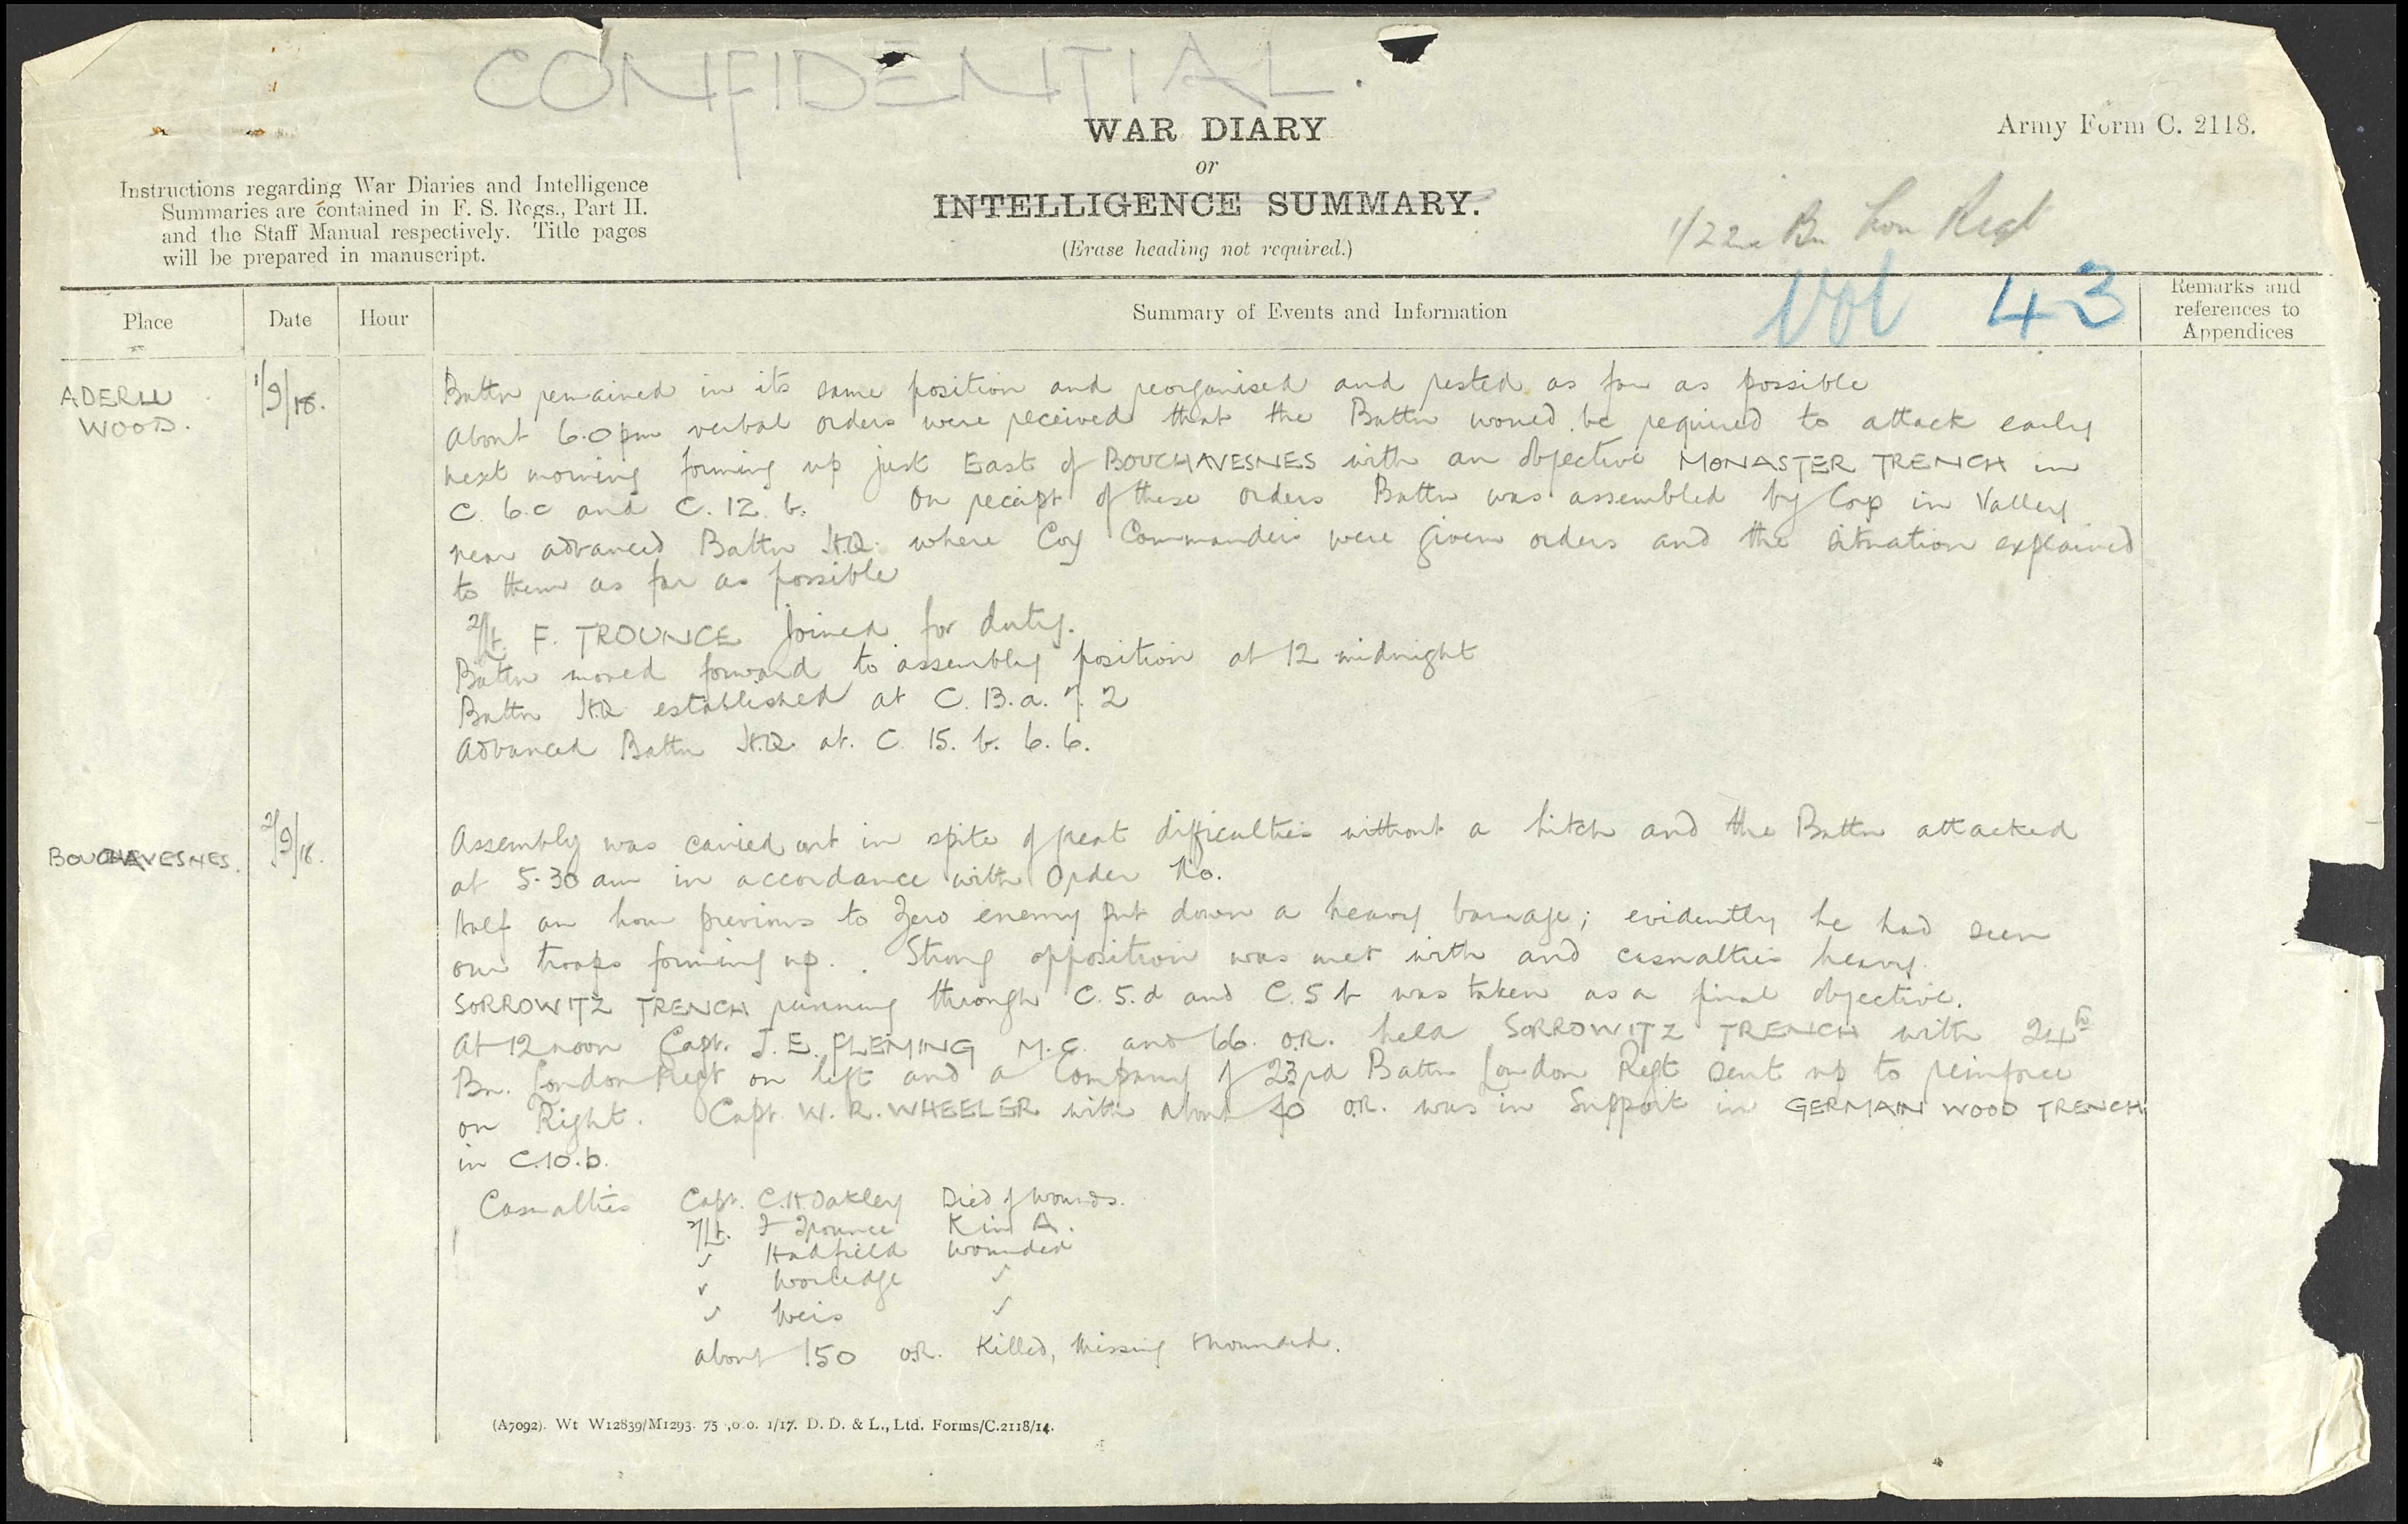 CONFIDENTIAL.
WAR DIARY
or
INTELLIGENCE SUMMARY.
(Erase heading not required.)
Army Form C. 2118.
Instructions regarding War Diaries and Intelligence
Summaries are contained in F. S. Regs., Part II.
and the Staff Manual respectively. Title pages
will be prepared in manuscript.
1/22nd Bn Lon Regt
Vol 43
Place
Date
Hour
Summary of Events and Information
Remarks and
references to
Appendices
ADERLU
WOOD.
1/9/18.
Battn remained in its same position and reorganised and rested as far as possible
About 6.0 pm verbal orders were received that the Battn would be required to attack early
next morning forming up just East of BOUCHAVESNES with an objective MONASTER TRENCH in
C 6.c and C. 12. b. On receipt of these orders Battn was assembled by Coys in Valley
near advanced Battn H.Q. where Coy Commanders were given orders and the situation explained
to them as far as possible
2/Lt. F. TROUNCE joined for duty.
Battn moved forward to assembly position at 12 midnight
Battn H.Q. established at C. 13. a. 7. 2
Advanced Battn H.Q. at. C. 15. b. 6. 6.
BOUCHAVESNES.
2/9/18.
Assembly was carried out in spite of great difficulties without a hitch and the Battn attacked
at 5.30 am in accordance with Order No.
Half an hour previous to Zero enemy put down a heavy barrage; evidently he had seen
our troops forming up. . Strong opposition was met with and casualties heavy.
SORROWITZ TRENCH running through C. 5. d and C. 5 b was taken as a final objective.
At 12 noon Capt. J. E. FLEMING M.C. and 66 O.R. held SORROWITZ TRENCH with 24th
Bn. London Regt on left and a Company of 23rd Battn London Regt sent up to reinforce
on Right. Capt. W. R. WHEELER with about 40 O.R. was in Support in GERMAN WOOD TRENCH
in C.10.b.
Casualties Capt. C.H. Oakley Died of wounds.
2/Lt. F Trounce K in A.
✓ Hadfield Wounded
✓ Worledge ✓
✓ Weis ✓
about 150 O.R. Killed, Missing & Wounded.
(A7092). Wt W12839/M1293. 75 ,0 o. 1/17. D. D. & L., Ltd. Forms/C.2118/14.